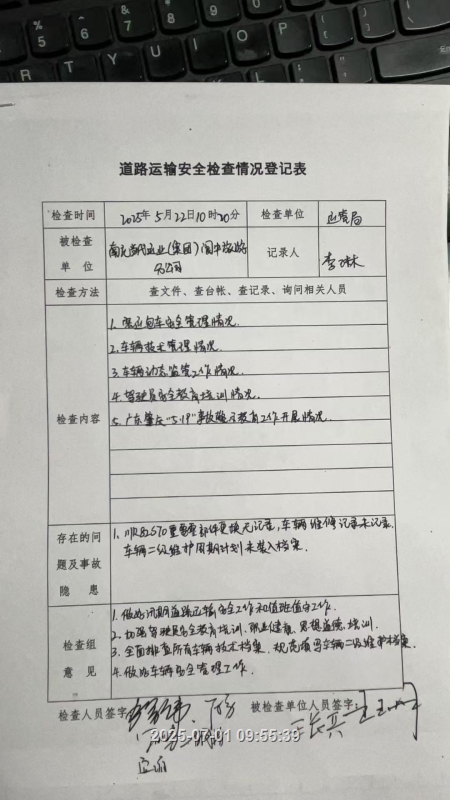 道路运输安全检查情况登记表
检查时间 2025年5月22日10时20分 检查单位 运管局
被检查单位 南充当代运业(集团)阆中 公司 记录人 李 林
检查方法 查文件、查台帐、查记录、询问相关人员
检查内容
1. 包车安全管理情况.
2. 车辆技术管理情况.
3. 车辆动态监管工作情况.
4. 驾驶员安全教育培训情况.
5. 广东肇庆“5.19”事故警示教育工作开展情况.
存在的问题及事故隐患
1、川R82570重要部件更换无记录,车辆维修记录未记录.
车辆二级维护周期计划未装入档案.
检查组意见
1. 做好汛期道路运输安全工作和值班值守工作.
2. 加强驾驶员安全教育培训、职业健康、思想道德培训.
3. 全面排查所有车辆技术档案、规范填写车辆二级维护档案.
4. 做好车辆安全管理工作.
检查人员签字: 被检查单位人员签字:
2025-06-01 09:55:39